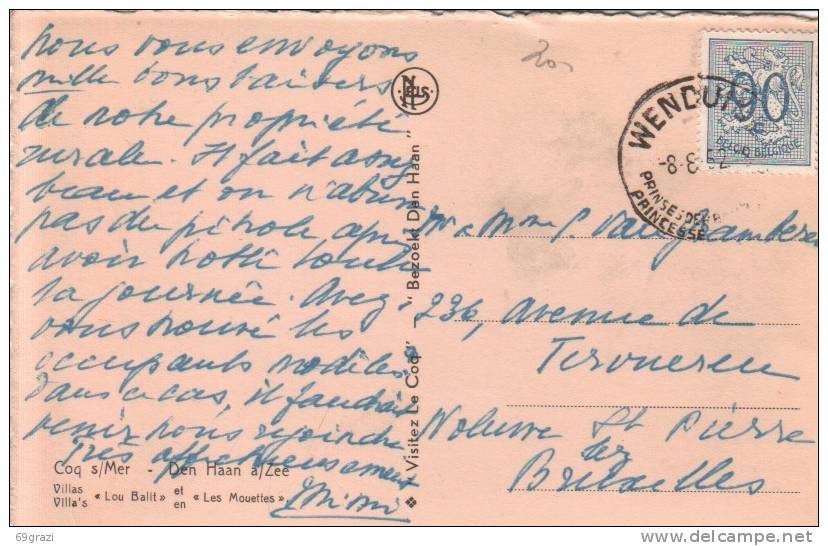 nous vous envoyons
mille bons baisers
de notre propriété
rurale. Il fait assez
beau et on n'abuse
pas du pétrole après
avoir trotté toute
la journée. Avez-
vous trouvé les
occupants
dans ce cas, il faudrait
venir nous rejoindre
Très affectueusement
Mimi
Coq s/Mer - Den Haan a/Zee
Villas « Lou Balit » et « Les Mouettes »
Villa's en
NELS
❖ Visitez Le Coq" — "Bezoekt Den Haan"
20
90
BELGIE BELGIQUE
WENDUINE
-8-8-52
PRINSES
PRINCESSE
Mr & Mme P. Van
236, Avenue de
Tervueren
Woluwe St Pierre
lez
Bruxelles
69grazi
© delcampe.net